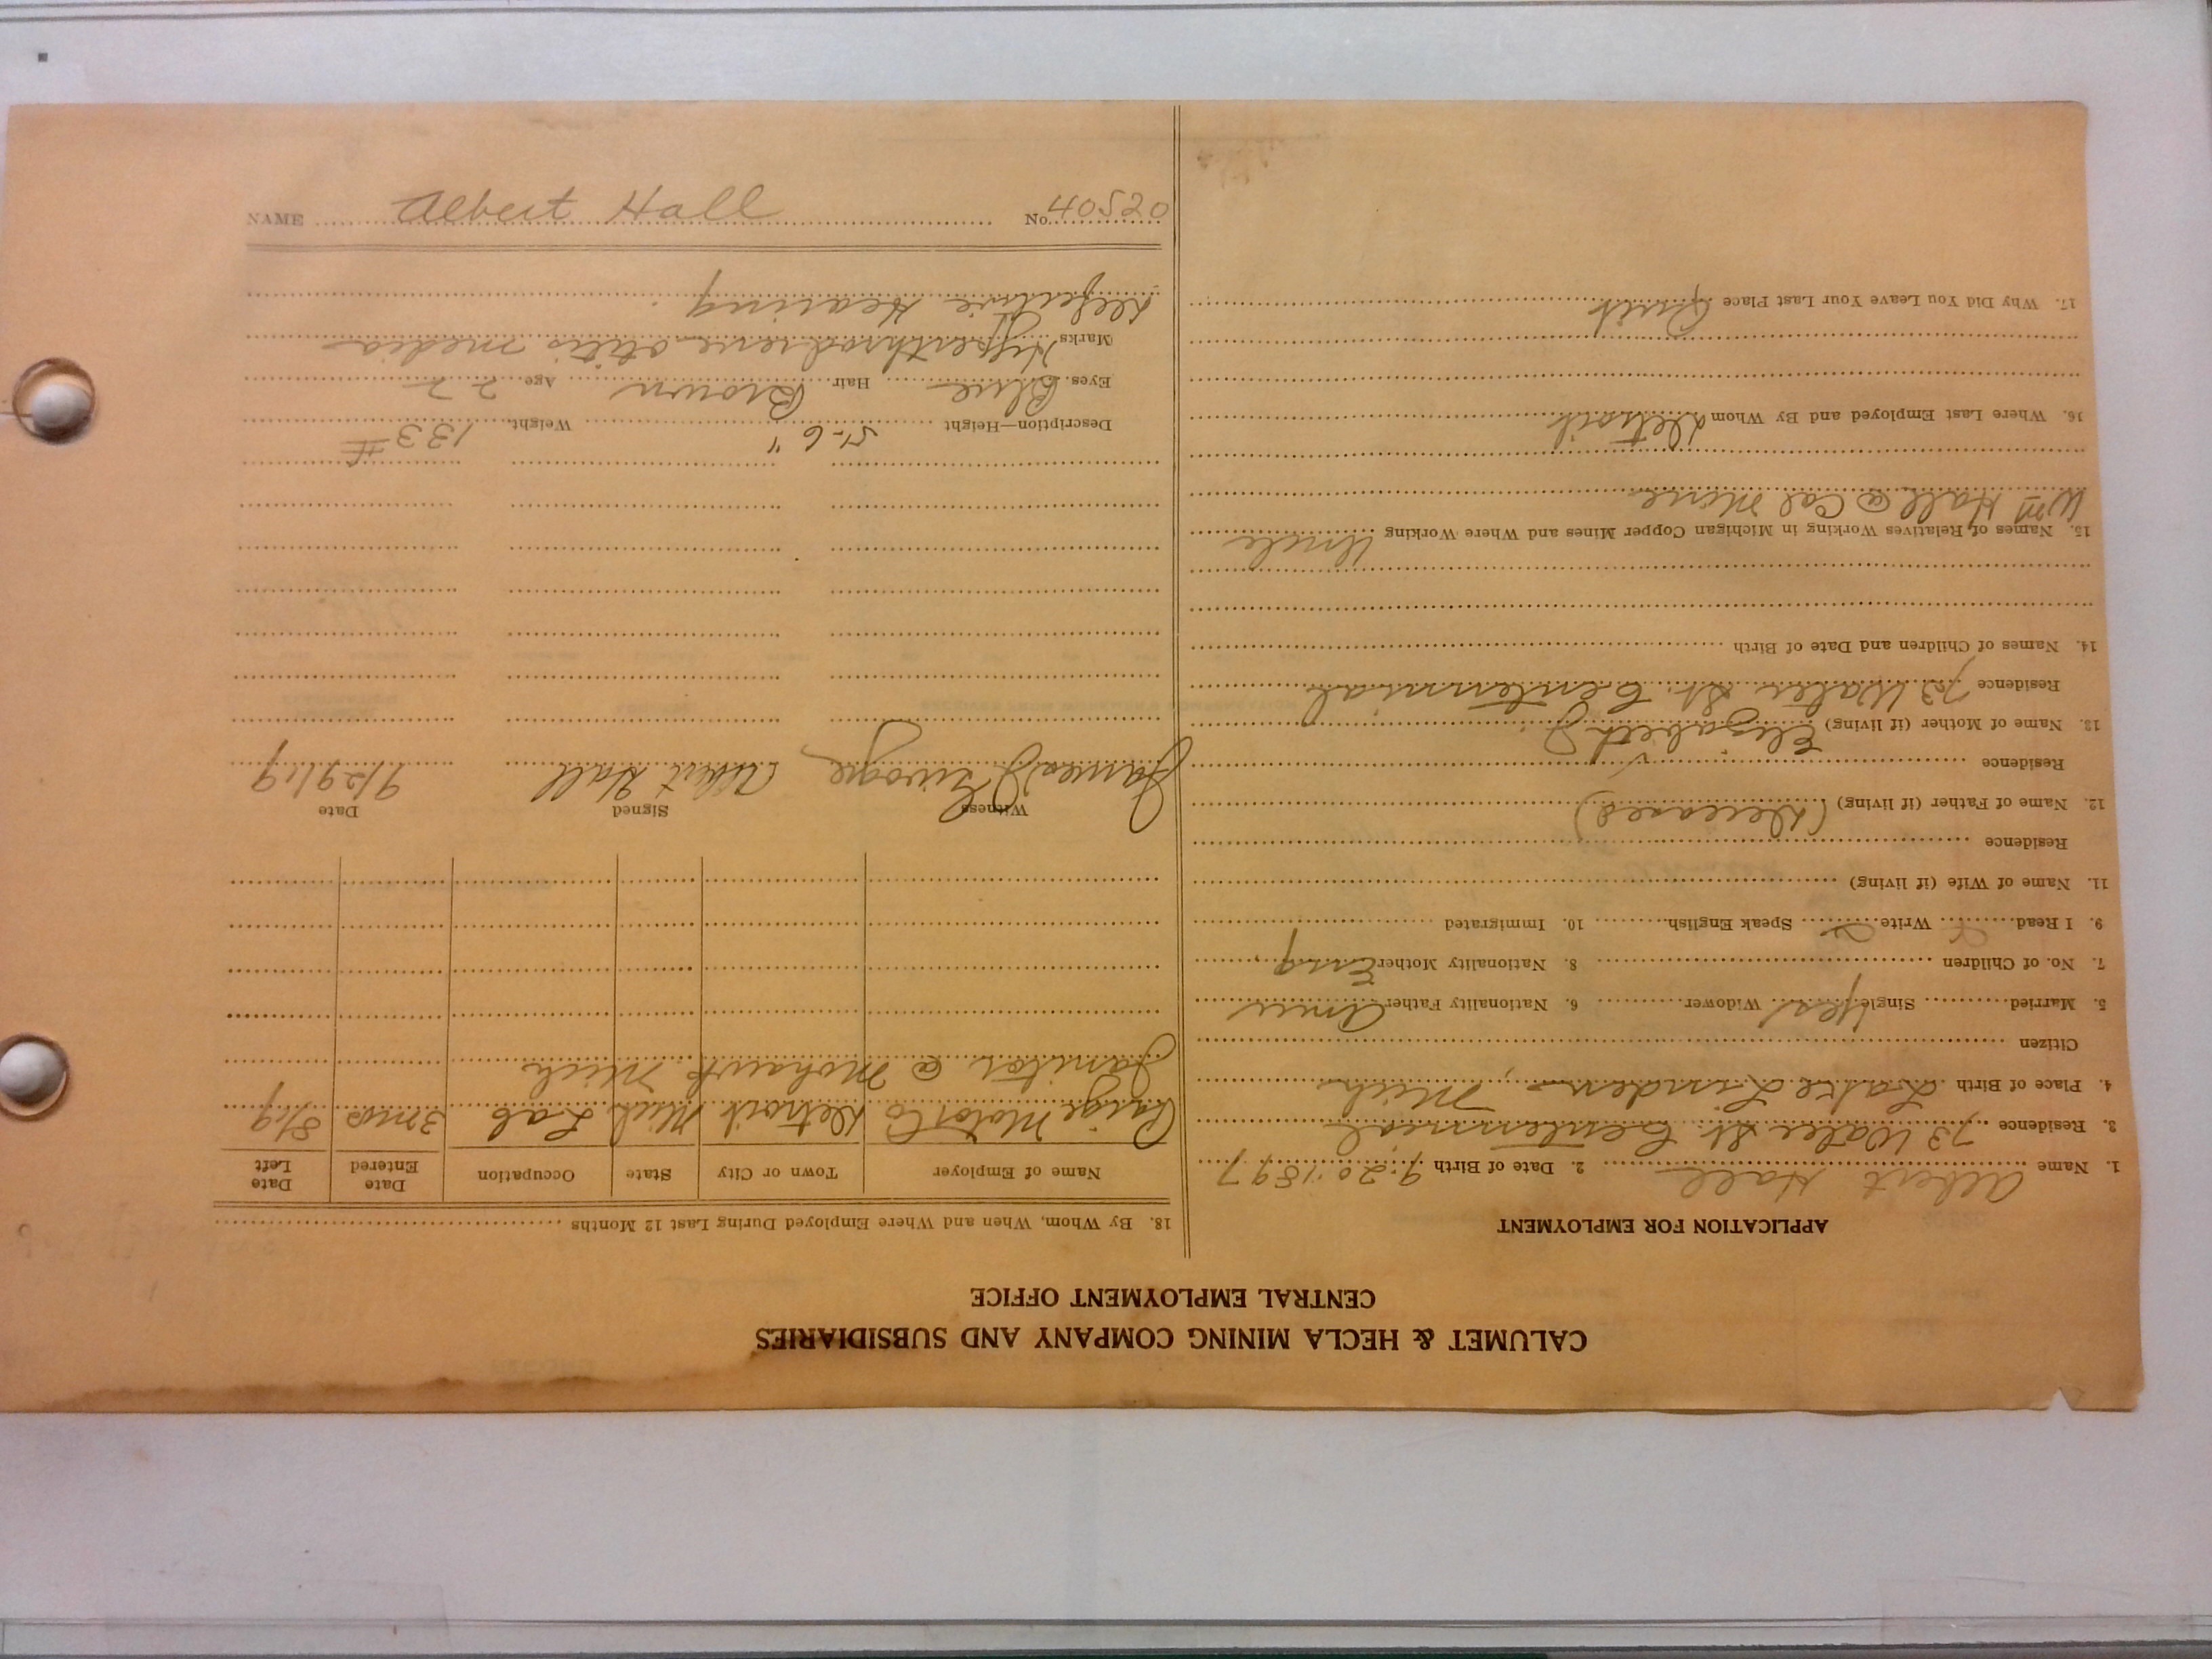 CALUMET & HECLA MINING COMPANY AND SUBSIDIARIES
CENTRAL EMPLOYMENT OFFICE
APPLICATION FOR EMPLOYMENT
1. Name Albert Hall 2. Date of Birth 9-20-1897
3. Residence 73 Water St. Centennial
4. Place of Birth Lake Linden, Mich
Citizen
5. Married Single Yes Widower 6. Nationality Father Amer
7. No. of Children 8. Nationality Mother Eng
9. I Read Write Speak English 10. Immigrated
11. Name of Wife (if living)
Residence
12. Name of Father (if living) (Deceased)
Residence
13. Name of Mother (if living) Elizabeth
Residence 73 Water St. Centennial
14. Names of Children and Date of Birth
15. Names of Relatives Working in Michigan Copper Mines and Where Working Uncle
Wm Hall @ Cal Mine
16. Where Last Employed and By Whom Detroit
17. Why Did You Leave Your Last Place Quit
18. By Whom, When and Where Employed During Last 12 Months
Name of Employer Town or City State Occupation Date Entered Date Left
Paige Motor Co Detroit Mich Lab 3 mos 8/19
Janitor @ Mohawk Mich
Witness Signed Date
James Albert Hall 9/29/19
Description—Height 5'-6" Weight 133#
Eyes Blue Hair Brown Age 22
Marks otitis media
Defective Hearing
NAME Albert Hall No. 40520